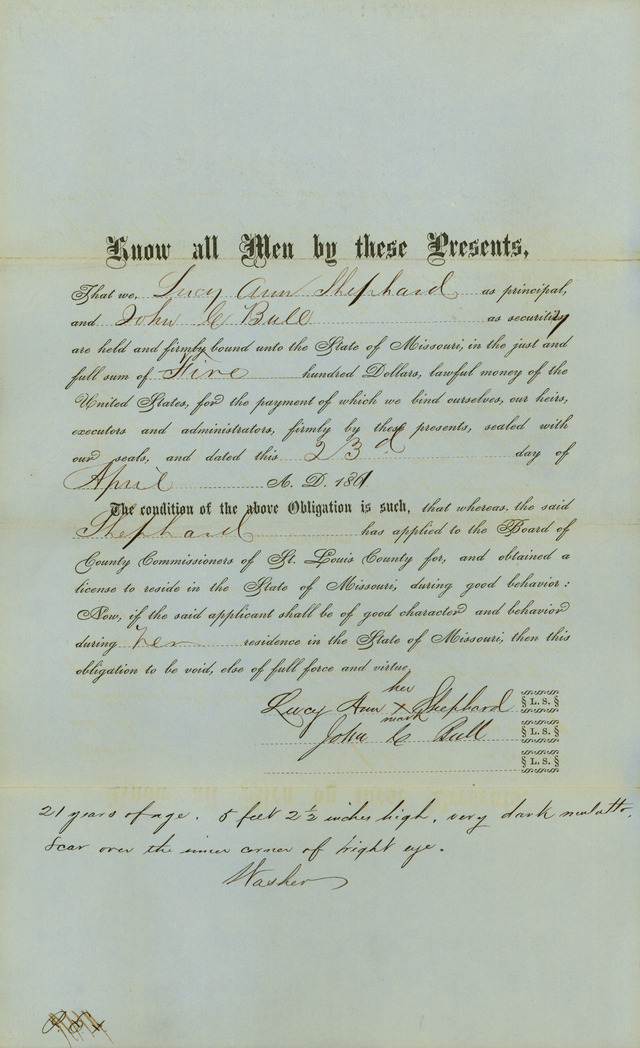 Know all Men by these Presents,
That we, Lucy Ann Shephard as principal,
and John C Bull as security
are held and firmly bound unto the State of Missouri, in the just and
full sum of Five hundred Dollars, lawful money of the
United States, for the payment of which we bind ourselves, our heirs,
executors and administrators, firmly by these presents, sealed with
our seals, and dated this 23d day of
April A. D. 1861
The condition of the above Obligation is such, that whereas, the said
Shephard has applied to the Board of
County Commissioners of St. Louis County for, and obtained a
license to reside in the State of Missouri, during good behavior:
Now, if the said applicant shall be of good character and behavior
during her residence in the State of Missouri, then this
obligation to be void, else of full force and virtue.
her
Lucy Ann X Shephard § L. S. §
mark
John C Bull § L. S. §
§ L. S. §
21 years of age. 5 feet 2½ inches high, very dark mulatto,
Scar over the inner corner of right eye.
Washer